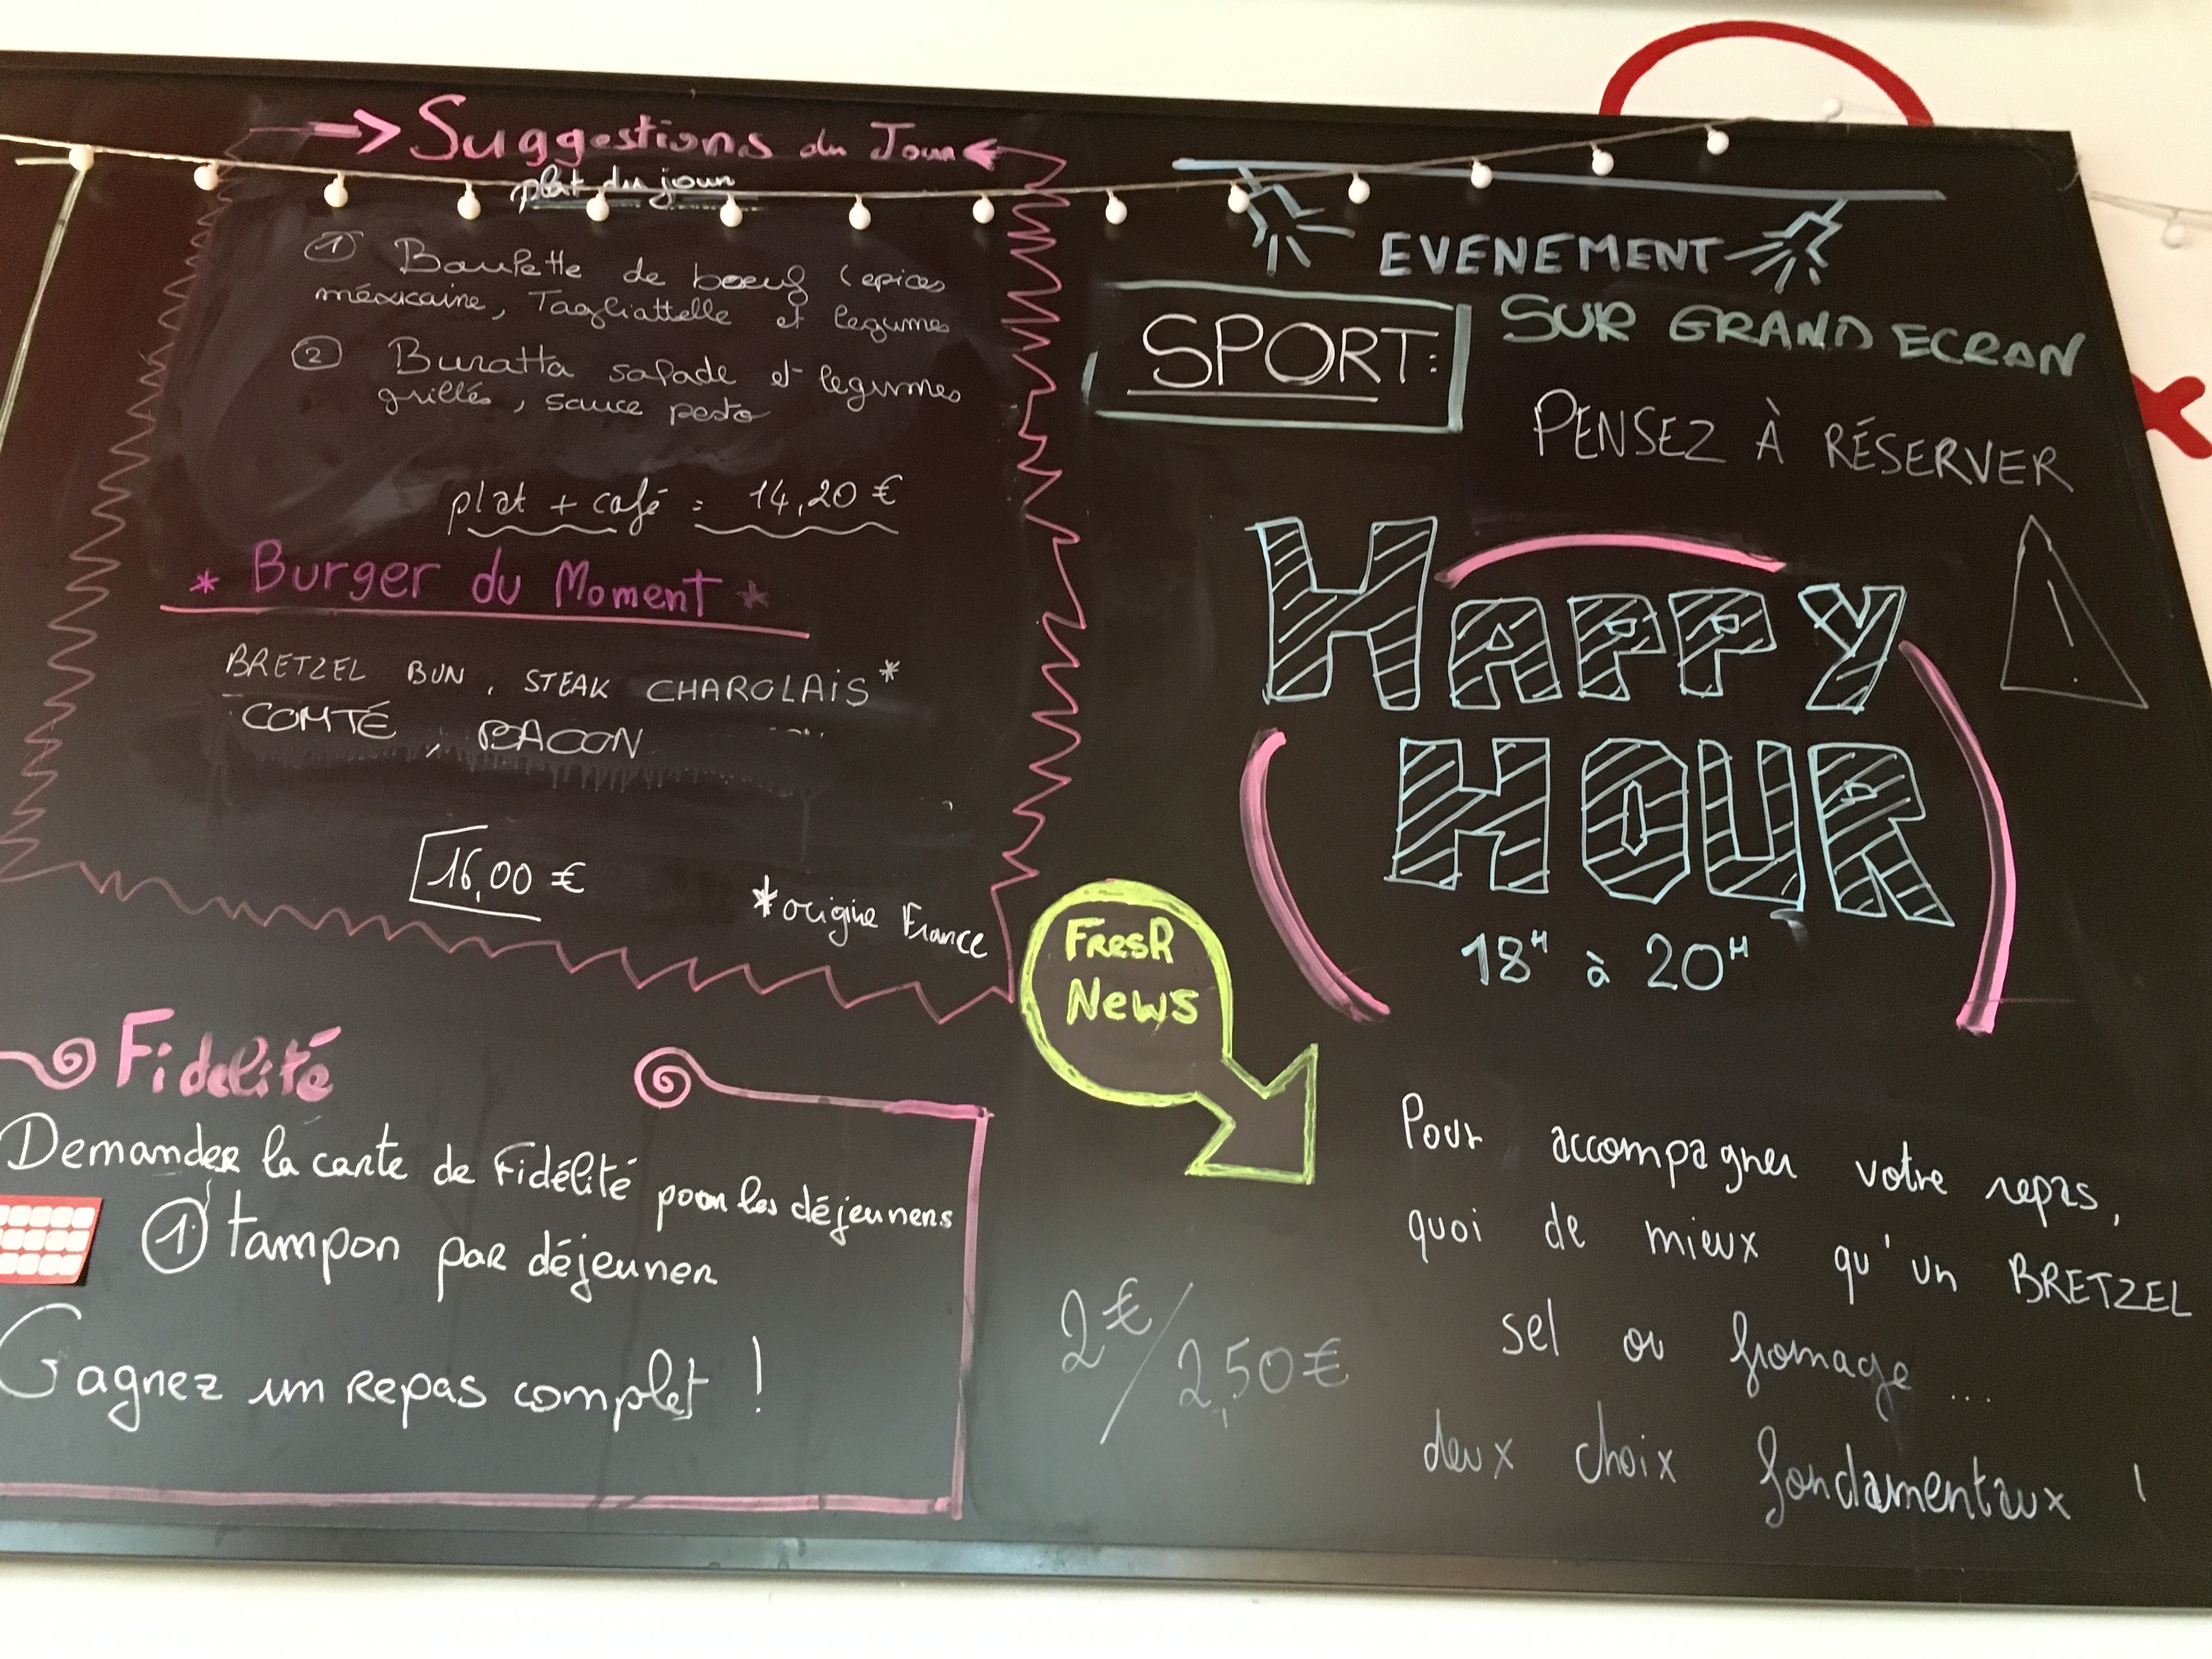 Suggestions du Jour
plat du jour
① Boulette de boeuf (epices
méxicaine, Tagliattelle et legumes
② Buratta salade et legumes
grillés, sauce pesto
plat + café = 14,20 €
* Burger du Moment *
BRETZEL BUN, STEAK CHAROLAIS*
COMTÉ, BACON
16,00 €
*origine France
Fidelité
Demander la carte de Fidélité pour les déjeuners
① tampon par déjeuner
Gagnez un repas complet !
EVENEMENT
SPORT:
SUR GRAND ECRAN
PENSEZ À RÉSERVER
HAPPY
HOUR
18H à 20H
FResh
News
Pour accompagner votre repas,
quoi de mieux qu'un BRETZEL
sel ou fromage ...
deux choix fondamentaux !
2€/2,50€